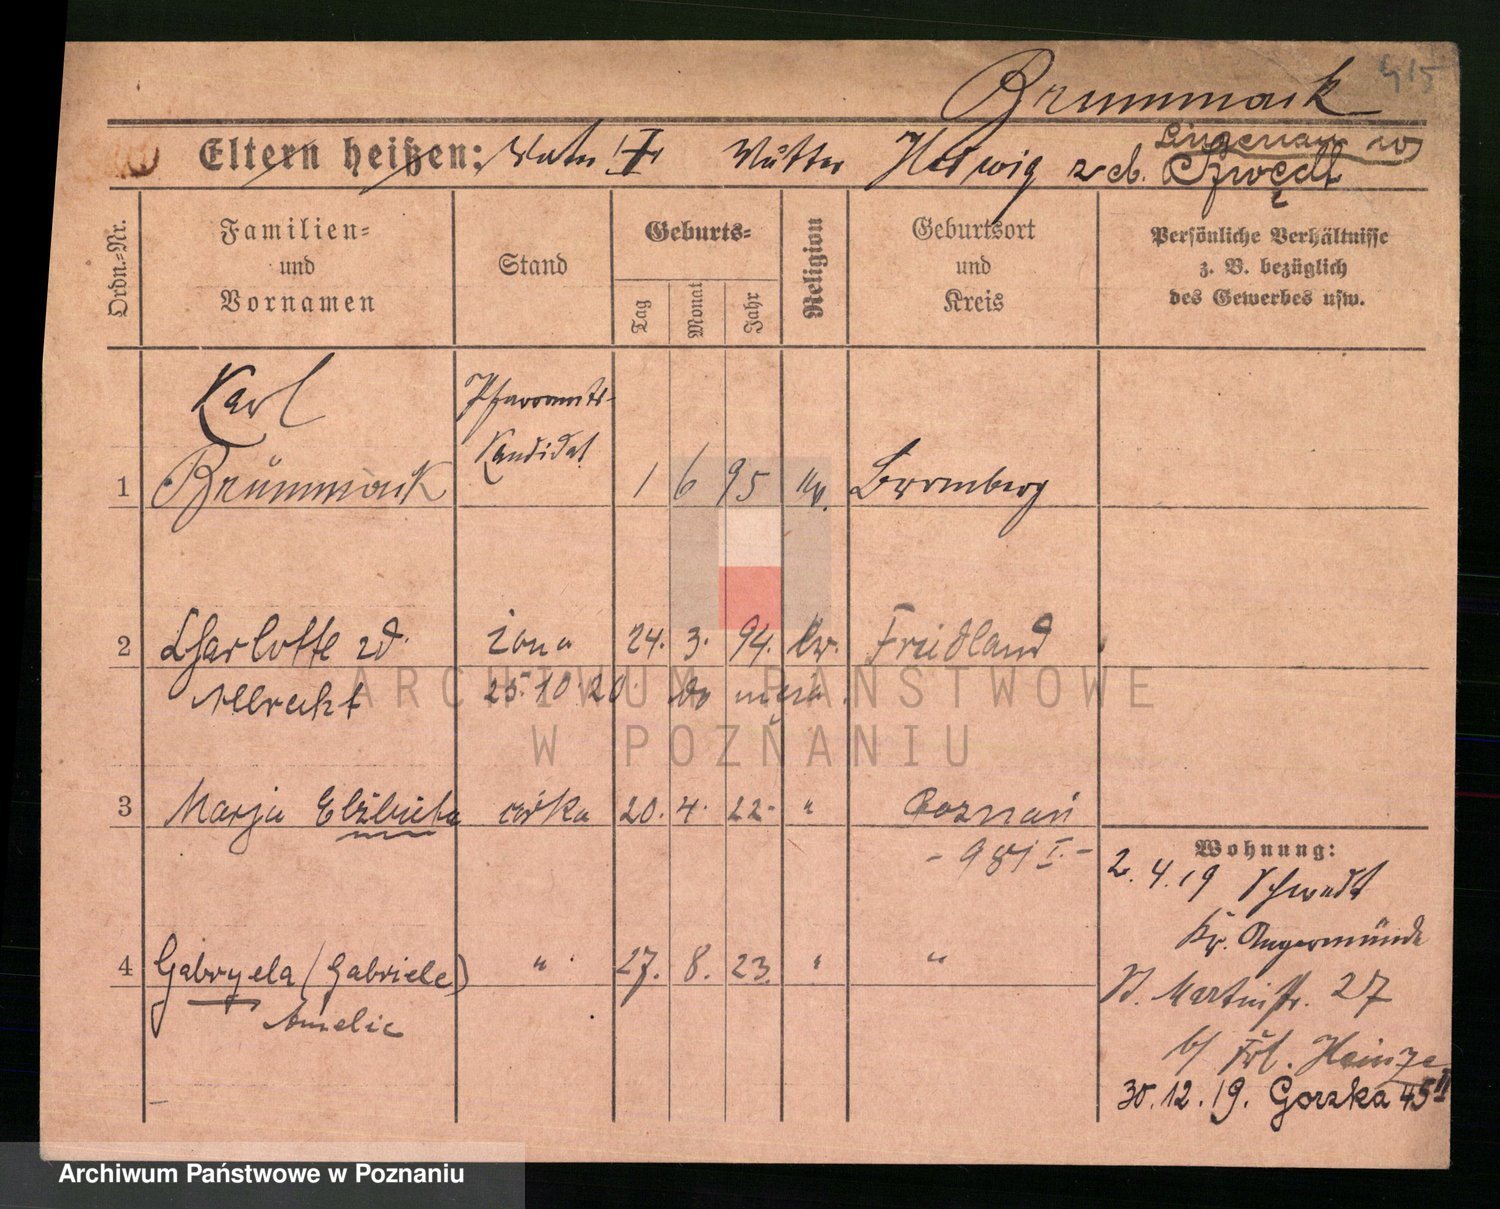 Brummack
415
Eltern heißen: Vater † Mutter Hedwig z d. Szwedt
Ordn.-Nr.
Familien-
und
Vornamen
Stand
Geburts-
Tag
Monat
Jahr
Religion
Geburtsort
und
Kreis
Persönliche Verhältnisse
z. B. bezüglich
des Gewerbes usw.
Karl Pfarramts-
Kandidat
1 Brümmack 1 6 95 ev. Bromberg
2 Charlotte zd. żona 24. 3. 94. ev. Friedland
Albrecht 25.10.20
3 Marja Elżbieta córka 20. 4. 22. " Poznań
- 981 I. -
4 Gabryela (Gabriele) " 27. 8. 23. " "
Amelie
Wohnung:
2. 4. 19 Schwedt
Kr. Angermünde
St. Martinstr. 27
b/ Frl. Heinze
30.12.19. Gorzka 45 II
ARCHIWUM PAŃSTWOWE
W POZNANIU
Archiwum Państwowe w Poznaniu